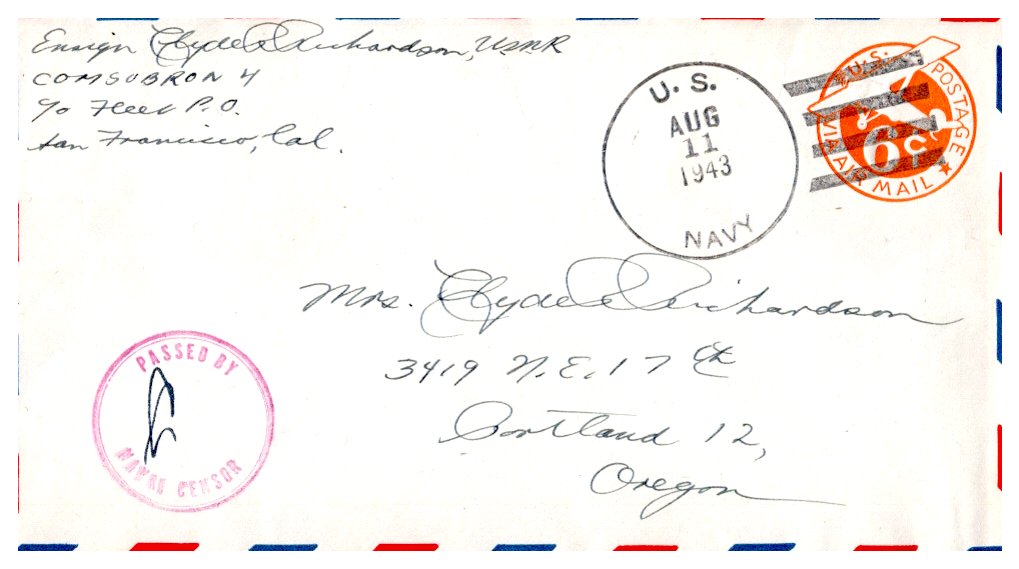 Ensign Clyde R. Richardson, USNR
COMSUBRON 4
c/o Fleet P.O.
San Francisco, Cal.
U.S.
AUG
11
1943
NAVY
U.S. POSTAGE
6c
VIA AIR MAIL
Mrs. Clyde R. Richardson
3419 N.E. 17th
Portland 12,
Oregon
PASSED BY
NAVAL CENSOR